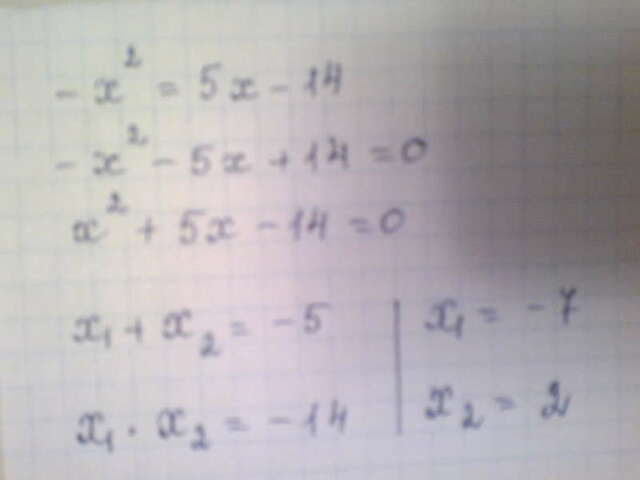 -x² = 5x - 14
-x² - 5x + 14 = 0
x² + 5x - 14 = 0
x₁ + x₂ = -5 | x₁ = -7
x₁ · x₂ = -14 | x₂ = 2